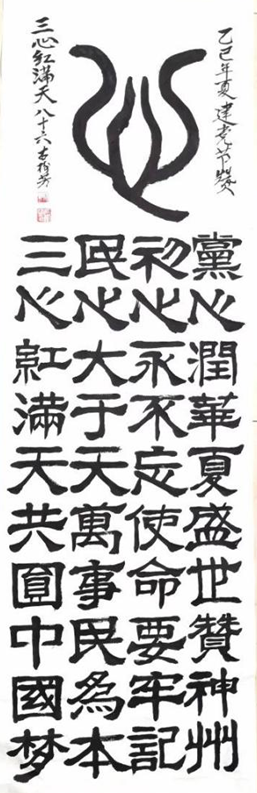 乙巳年夏建党节赞
心
三心红满天八十六
黨心潤華夏盛世贊神州
初心永不忘使命要牢記
民心大于天萬事民為本
三心紅滿天共圓中國梦